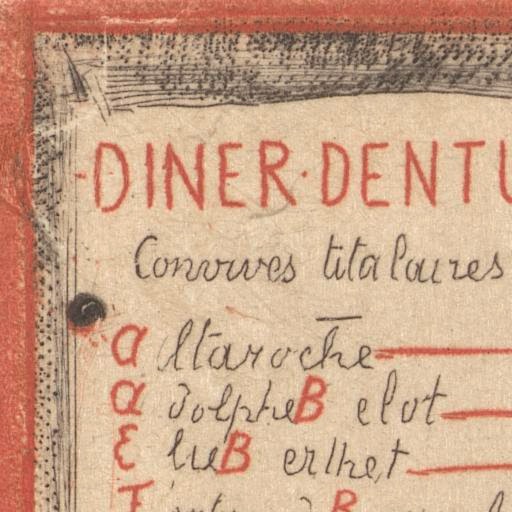 ·DINER·DENTU
Convives titulaires
Altaroche
Adolphe Belot
Elie Berthet